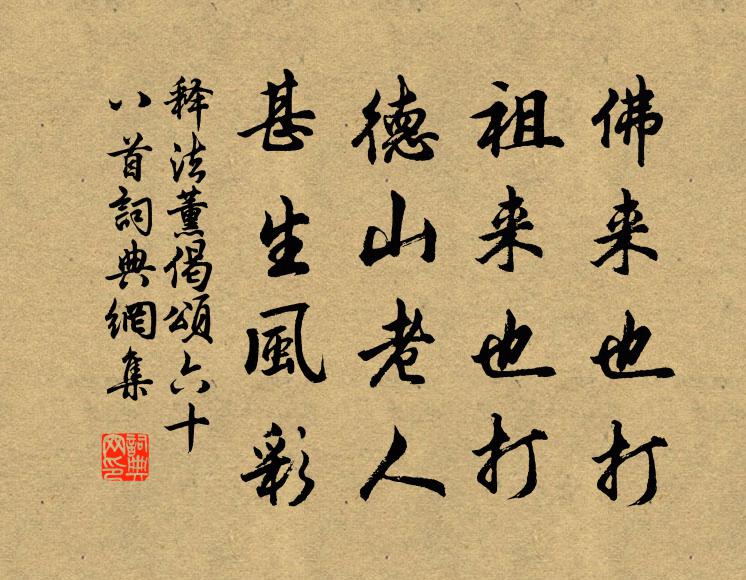 佛来也打
祖来也打
德山老人
甚生風彩
释法薰偈頌六十
八首詞典網集
詞典网印